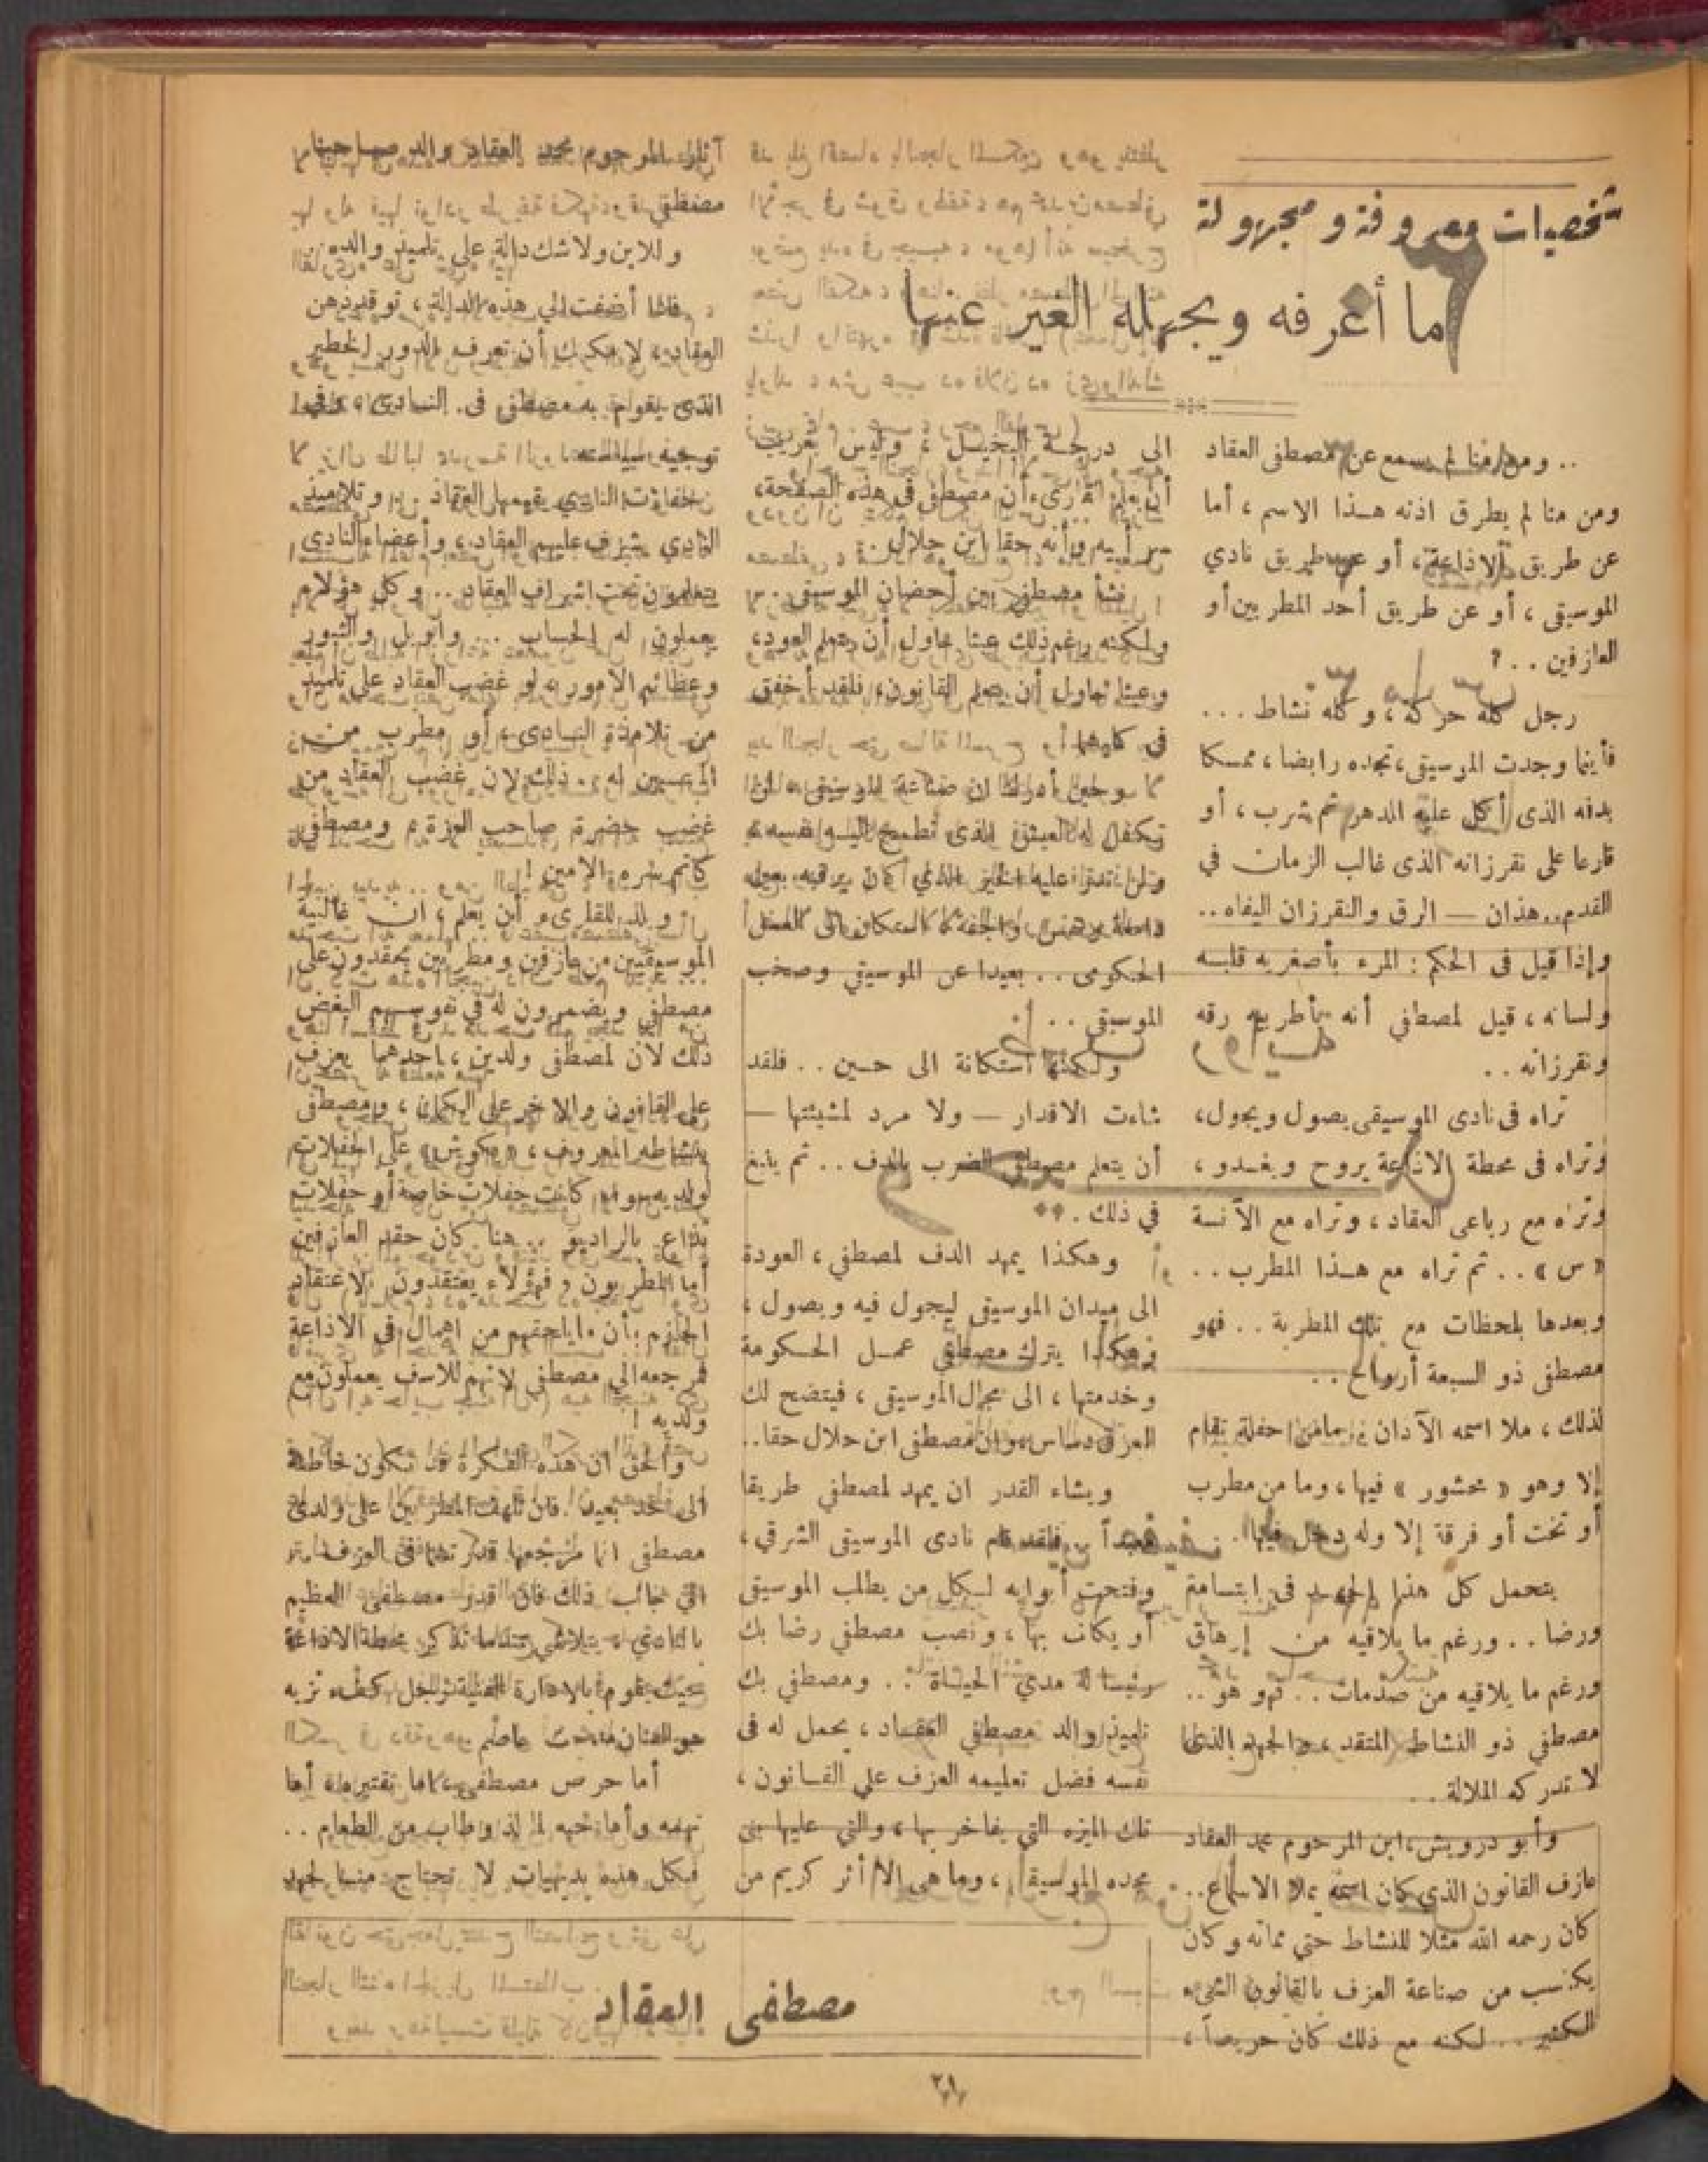 شخصيات معروفة ومجهولة
ما أعرفه ويجهله الغير عنها
.. ومن منا لم يسمع عن مصطفى العقاد
ومن منا لم يطرق اذنه هذا الاسم ، أما
عن طريق الاذاعة ، أو عن طريق نادي
الموسيقى ، أو عن طريق أحد المطربين أو
العازفين .. ؟
رجل كله حركة ، وكله نشاط ...
فأينما وجدت الموسيقى ، تجده رابضا ، ممسكا
بدفه الذى أكل عليه الدهر ثم شرب ، أو
قارعا على نقرزانه الذى غالب الزمان في
القدم .. هذان — الرق والنقرزان اليفاه ..
وإذا قيل فى الحكم : المرء بأصغريه قلبه
ولسانه ، قيل لمصطفي أنه بأطربيه رقه
ونقرزانه ..
تراه فى نادى الموسيقى يصول ويجول ،
وتراه فى محطة الاذاعة يروح ويغدو ،
وتراه مع رباعى العقاد ، وتراه مع الآنسة
« س » .. ثم تراه مع هذا المطرب ..
وبعدها بلحظات مع تلك المطربة .. فهو
مصطفى ذو السبعة أرواح ..
لذلك ، ملا اسمه الآذان فما من احفلة تقام
إلا وهو « محشور » فيها ، وما من مطرب
أو تخت أو فرقة إلا وله دخل فيها .
يتحمل كل هذا الجهد فى ابتسامة
ورضا .. ورغم ما يلاقيه من إرهاق
ورغم ما يلاقيه من صدمات .. فهو هو ..
مصطفي ذو النشاط المتقد ، والجهد الذى
لا تدركه الملالة ..
وأبو درويش ، ابن المرحوم محمد العقاد
عازف القانون الذي كان اسمه ملا الاسماع ..
كان رحمه الله مثلا للنشاط حتي مماته وكان
يكتسب من صناعة العزف بالقانون الشيء
الكثير .. لكنه مع ذلك كان حريصاً ،
الى درجة البخل ، وليس بغريب
أن يعلم القارىء أن مصطفى في هذه الصفحة ،
سر أبيه وأنه حقا ابن حلال .
نشأ مصطفى بين أحضان الموسيقى ..
ولكنه رغم ذلك عبثا حاول أن يتعلم العود ،
وعبثا حاول أن يتعلم القانون ، فلقد أخفق
فى كليهما
الحكومى .. بعيدا عن الموسيقي وصخب
الموسيقي ..
ولكنها استكانة الى حين .. فلقد
شاءت الاقدار — ولا مرد لمشيئتها —
أن يتعلم مصطفى الضرب بالدف .. ثم ينبغ
في ذلك ..
وهكذا يمهد الدف لمصطفي ، العودة
الى ميدان الموسيقي ليجول فيه ويصول ،
وهكذا يترك مصطفي عمل الحكومة
وخدمتها ، الى مجال الموسيقي ، فيتضح لك
العرق دساس وان مصطفى ابن حلال حقا ..
ويشاء القدر ان يمهد لمصطفي طريقا
فلقد قام نادى الموسيقى الشرقي ،
وفتحت أبوابه لكل من يطلب الموسيقى
أو يكلف بها ، ونصب مصطفي رضا بك
رئيسا له مدي الحياة .. ومصطفي بك
تلميذ والد مصطفي العقاد ، يحمل له فى
نفسه فضل تعليمه العزف علي القانون ،
تلك الميزه التي يفاخر بها ، والتي عليها بنى
مجده الموسيقى ، وما هى الا أثر كريم من
آثار المرحوم محمد العقاد والد صاحبنا
مصطفي
وللابن ولا شك دالة على تلميذ والده .
فاذا أضفت الي هذه الدالة ،
العقاد ، لا مكنك أن تعرف الدور الخطير
الذى يقوم به مصطفى فى النادى ،
توجيه سياسته
حفلات النادي يقيمها العقاد .. وتلاميذ
النادي يشرف عليهم العقاد ، وأعضاء النادى
يعلمون تحت اشراف العقاد .. وكل هؤلاء
يعملون له الحساب ... والويل والثبور
وعظائم الامور لو غضب العقاد على تلميذ
من تلامذة النادى ، أو مطرب من
ذلك لان غضب العقاد من
غضب حضرة صاحب العزة ، ومصطفى
كاتم سره الامين !
ولابد للقارىء أن يعلم ، ان غالبية
الموسيقيين من عازفين ومطربين يحقدون على
مصطفي ويضمرون له في نفوسهم البغض
ذلك لأن لمصطفى ولدين ، احدهما يعزف
على القانون والاخر على الكمان ، ومصطفى
بنشاطه المعروف ، « يكوش » على الحفلات
لولديه سواء كانت حفلات خاصة أو حفلات
تذاع بالراديو .. هنا كان حقد العازفين
أما المطربون ، فهؤلاء يعتقدون الاعتقاد
الجازم بأن ما يلحقهم من اهمال في الاذاعة
مرجعه الي مصطفى لانهم للاسف يعملون مع
ولديه !
والحق ان هذه الفكرة قد تكون خاطئة
الى حد بعيد . فان تلهف المطربين على ولدى
مصطفى انما مرجعها قدرتهما فى العزف
الي جانب ذلك فان قدر مصطفى العظيم
بالنادي ، يتلاشي عندما نذكر محطة الاذاعة
حيث يقوم بالادارة الفنية رجل كفء نزيه
هو الفنان مدحت عاصم
أما حرص مصطفى ، أما تقتيره ، أما
نهمه وأما حبه لما لذ وطاب من الطعام ..
فكل هذه بديهيات لا تحتاج منا لجهد
مصطفى العقاد
٢١